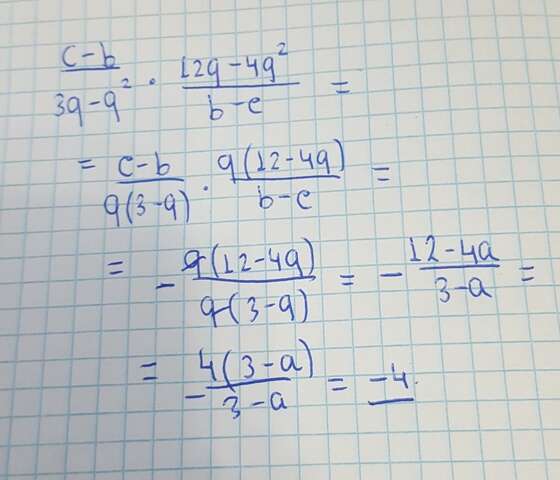 (c-b)/(3a-a²) · (12a-4a²)/(b-c) =
= (c-b)/(a(3-a)) · (a(12-4a))/(b-c) =
= -(a(12-4a))/(a(3-a)) = -(12-4a)/(3-a) =
= -(4(3-a))/(3-a) = -4.